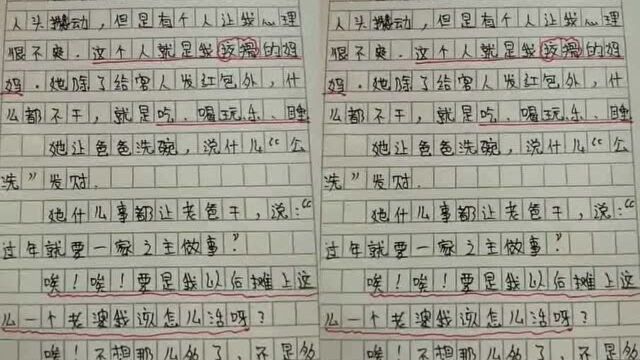 人头攒动，但是有个人让我心理
很不爽.这个人就是我的妈
妈.她除了给客人发红包外，什
么都不干，就是吃、喝玩乐、睡
她让爸爸洗碗，说什么“公
洗”发财.
她什么事都让老爸干，说：“
过年就要一家之主做事”
唉！唉！要是我以后摊上这
么一个老婆我该怎么活呀？
唉！不想那么多了，不是
人头攒动，但是有个人让我心理
很不爽.这个人就是我的妈
妈.她除了给客人发红包外，什
么都不干，就是吃、喝玩乐、睡
她让爸爸洗碗，说什么“公
洗”发财.
她什么事都让老爸干，说：“
过年就要一家之主做事”
唉！唉！要是我以后摊上这
么一个老婆我该怎么活呀？
唉！不想那么多了，不是